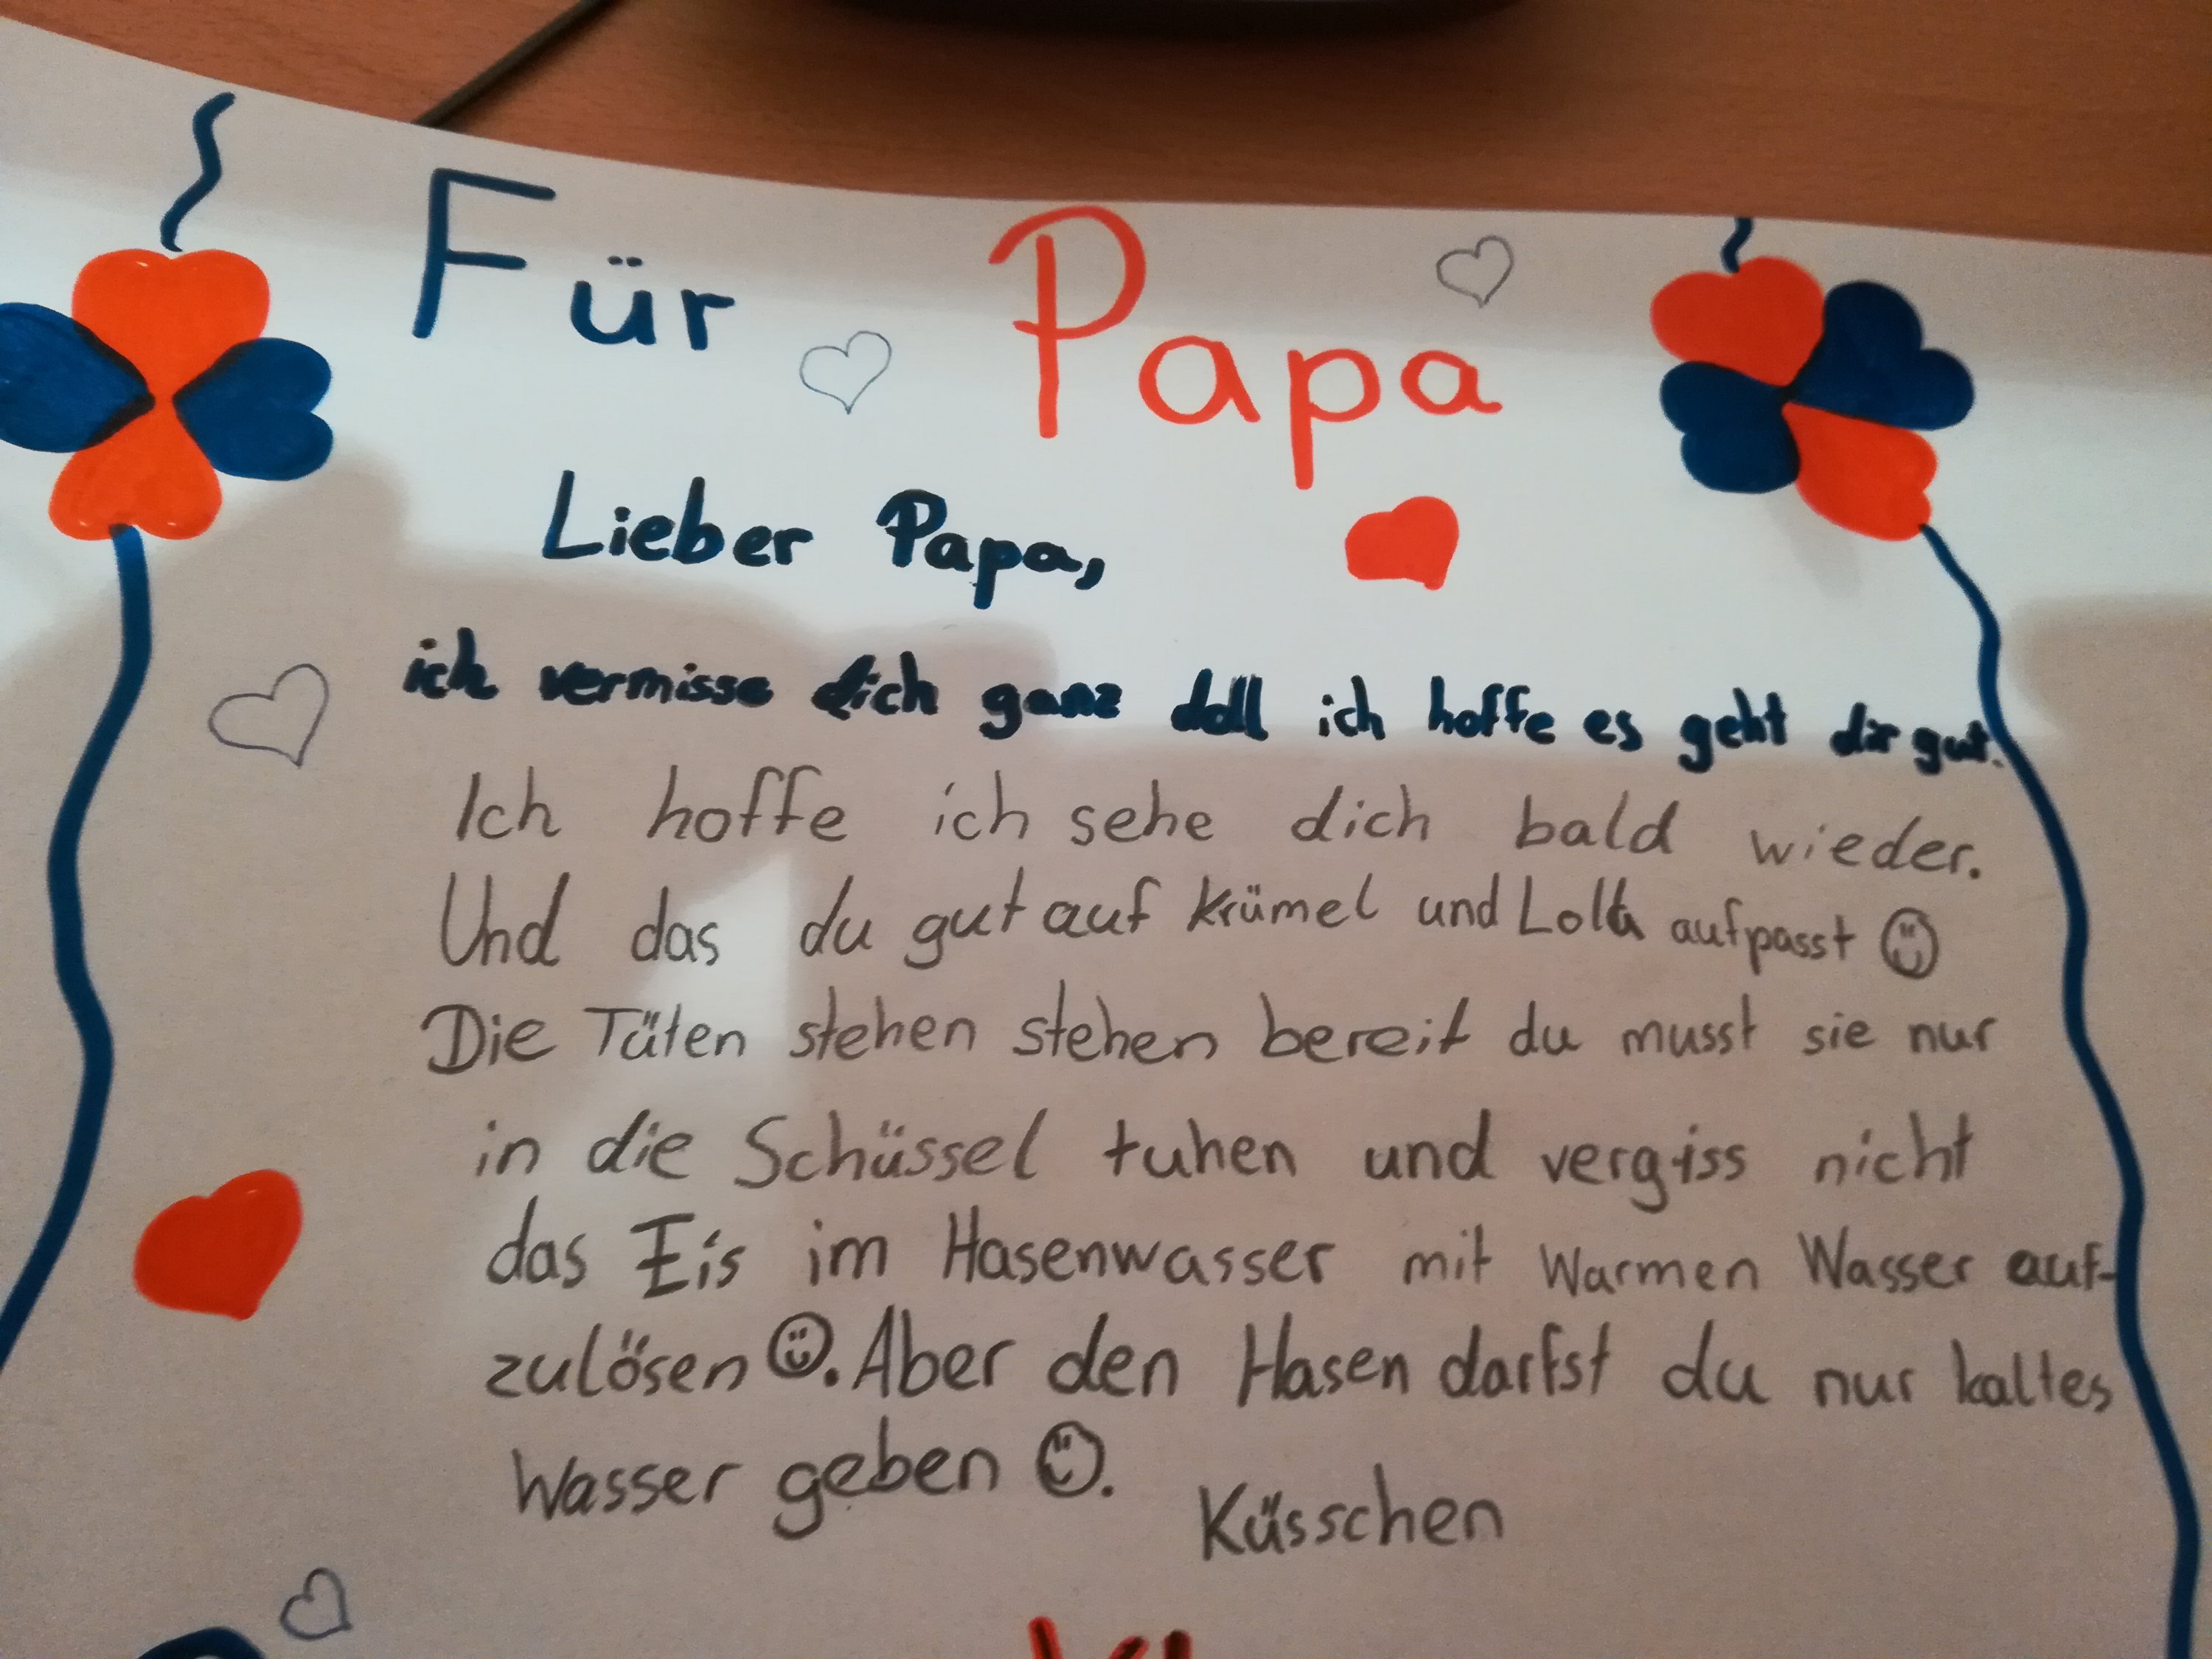 Für Papa
Lieber Papa,
ich vermisse dich ganz doll ich hoffe es geht dir gut.
Ich hoffe ich sehe dich bald wieder.
Und das du gut auf Krümel und Lola aufpasst ☺
Die Tüten stehen stehen bereit du musst sie nur
in die Schüssel tuhen und vergiss nicht
das Eis im Hasenwasser mit Warmen Wasser auf-
zulösen ☺. Aber den Hasen darfst du nur kaltes
Wasser geben ☺.
Küsschen